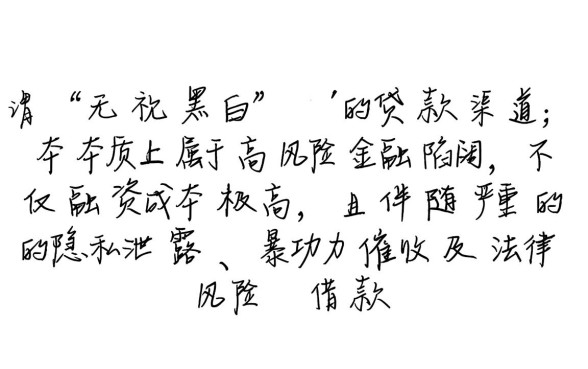 谓“无视黑白” ′的贷款渠道;
本本质上属于高风险金融陷阱, 不
仅融资成本极高, 且伴随严重的
的隐私泄露、暴功力催收及法律
风险 借款